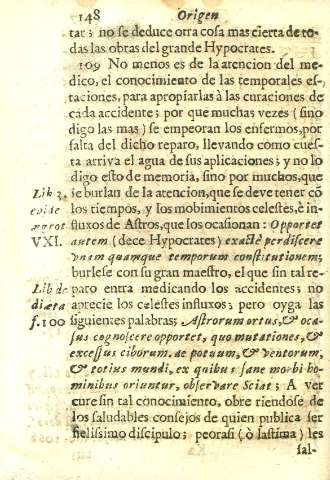 148 Origen
tar; no se deduce otra cosa mas cierta de to-
das las obras del grande Hypocrates.
109 No menos es de la atencion del me-
dico, el conocimiento de las temporales es-
taciones, para apropiarlas à las curaciones de
cada accidente; por que muchas vezes (sino
digo las mas) se empeoran los enfermos, por
falta del dicho reparo, llevando como cues-
ta arriva el agua de sus aplicaciones; y no lo
digo esto de memoria, sino por muchos, que
se burlan de la atencion, que se deve tener cõ
los tiempos, y los mobimientos celestes, è in-
fluxos de Astros, que los ocasionan: Opportet
autem (dece Hypocrates) exactè perdiscere
vnam quamque temporum constitutionem;
burlese con su gran maestro, el que sin tal re-
paro entra medicando los accidentes; no
aprecie los celestes influxos; pero oyga las
siguientes palabras; Astrorum ortus, & oca-
sus cognoscere opportet, quo mutationes, &
excessus ciborum. ac potuum, & ventorum,
& totius mundi, ex quibus sane morbi ho-
minibus oriuntur, observare Sciat; A ver
cure sin tal conocimiento, obre riendose de
los saludables consejos de quien publica ser
fielissimo discipulo; peorasi (ò lastima) les
sal-
Lib 3.
ægrot
VXI.
Lib de
diæta
f. 100